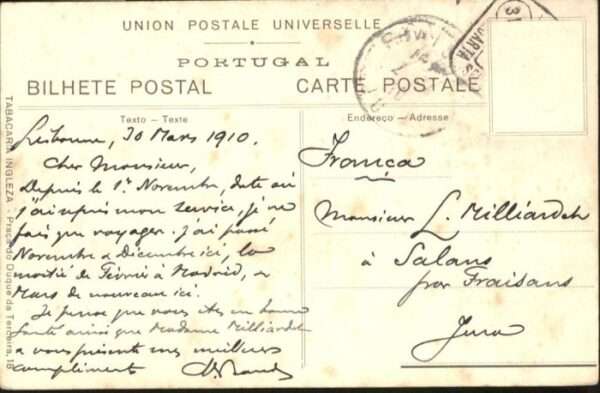 UNION POSTALE UNIVERSELLE
PORTUGAL
BILHETE POSTAL
CARTE POSTALE
Texto - Texte
Endereço - Adresse
Lisbonne, 30 Mars 1910.
Cher Monsieur,
Depuis le 1er Novembre, date où
j'ai repris mon service, je ne
fais que voyager. J'ai passé
Novembre & Décembre ici, la
moitié de Février à Madrid, &
Mars de nouveau ici.
Je pense que vous êtes en bonne
santé ainsi que Madame Milliardet
& vous présente mes meilleurs
compliments
França
Monsieur L. Milliardet
à Salans
par Fraisans
Jura
TABACARIA INGLEZA - Praça do Duque da Terceira, 18